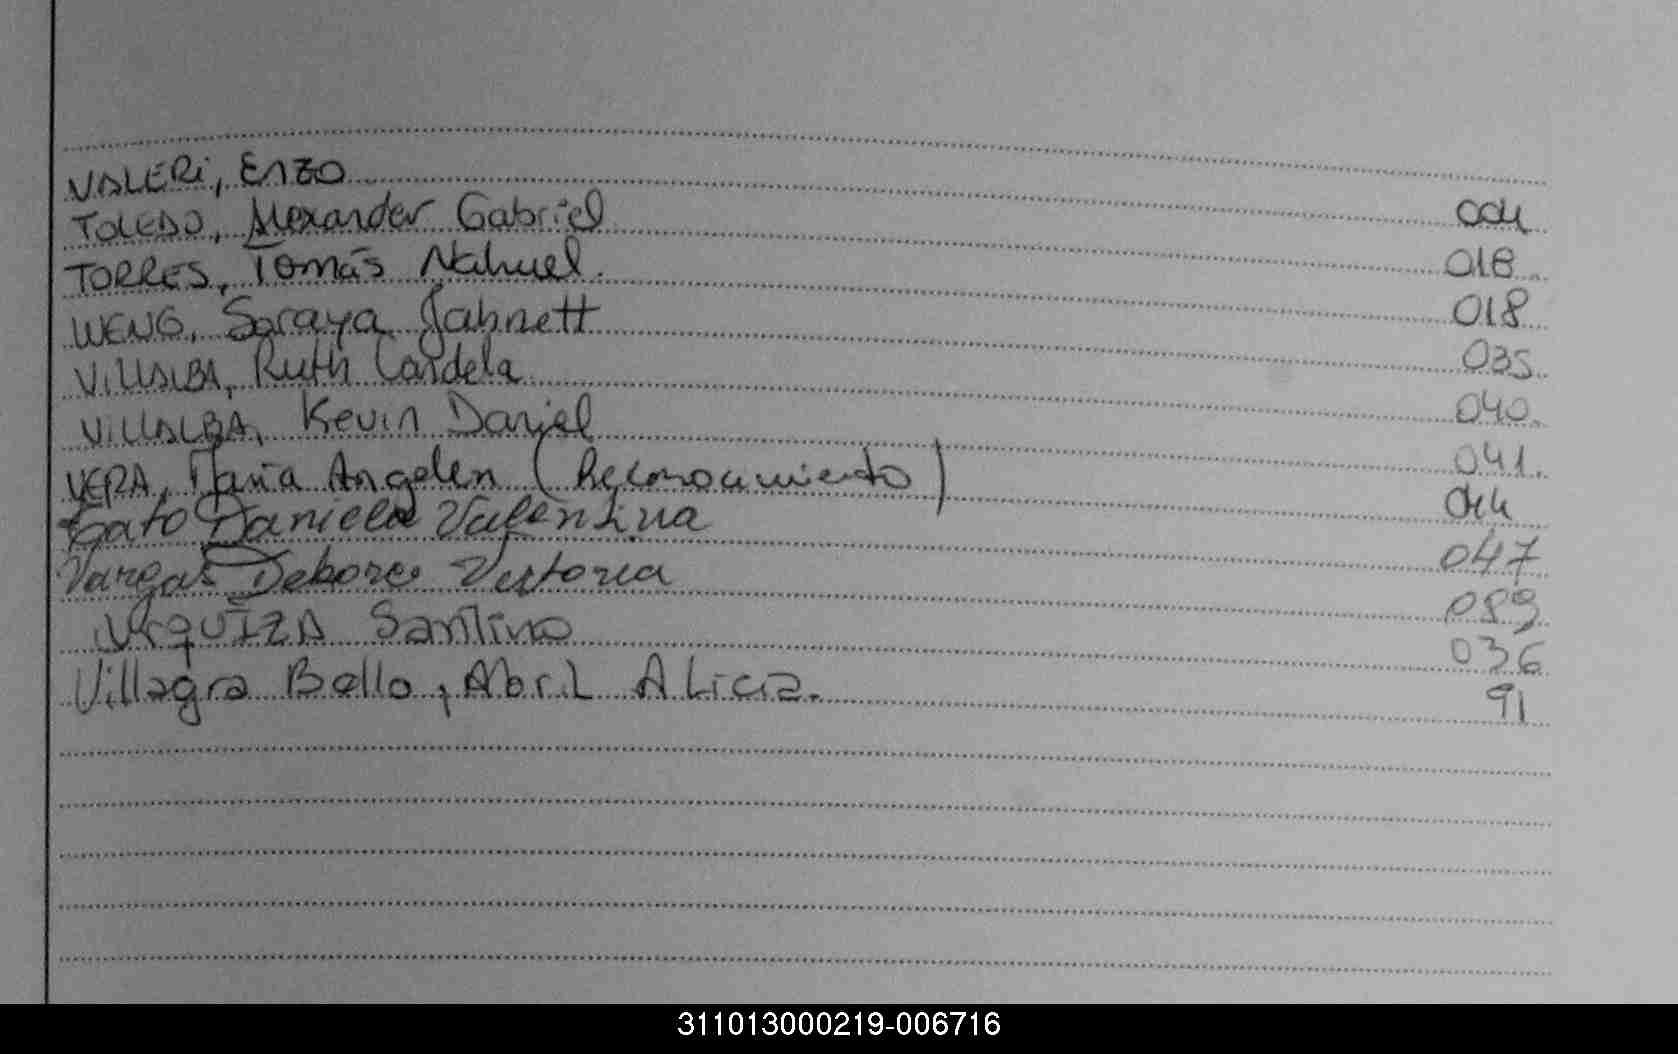 VALERI, Enzo 004
TOLEDO, Alexander Gabriel 018
TORRES, Tomás Nahuel. 018
WENG, Soraya Jabnett 035
VILLALBA, Ruth Candela 040
VILLALBA, Kevin Daniel 041
VERA, María Angelen (Reconocimiento) 044
Daniela Valentina 047
Vargas Debora Victoria 089
URQUIZA Santino 036
Villagra Bello, Abril Alicia. 91
311013000219-006716